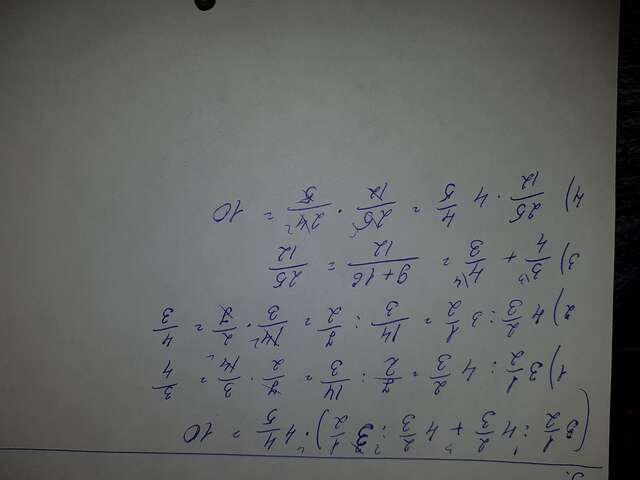 5.
(3 1/2 : 4 2/3 + 4 2/3 : 3 1/2) · 4 4/5 = 10
1) 3 1/2 : 4 2/3 = 7/2 : 14/3 = 7/2 · 3/14 = 3/4
2) 4 2/3 : 3 1/2 = 14/3 : 7/2 = 14/3 · 2/7 = 4/3
3) 3/4 + 4/3 = 9+16/12 = 25/12
4) 25/12 · 4 4/5 = 25/12 · 24/5 = 10